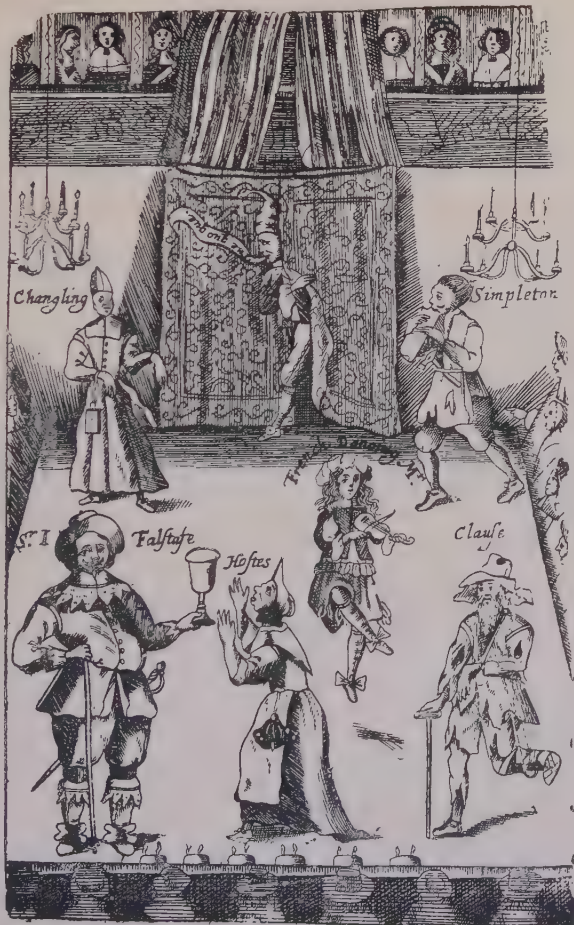 Changling
Simpleton
French Dancing Mr
Sr I Falſtafe
Hoſtes
Clauſe